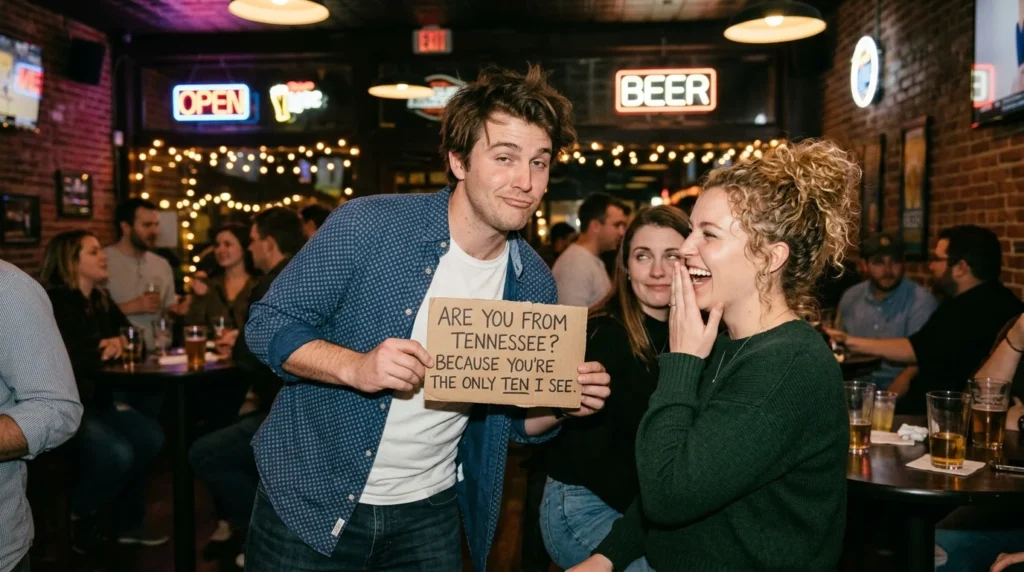 EXIT
OPEN
BEER
ARE YOU FROM
TENNESSEE?
BECAUSE YOU'RE
THE ONLY TEN I SEE.